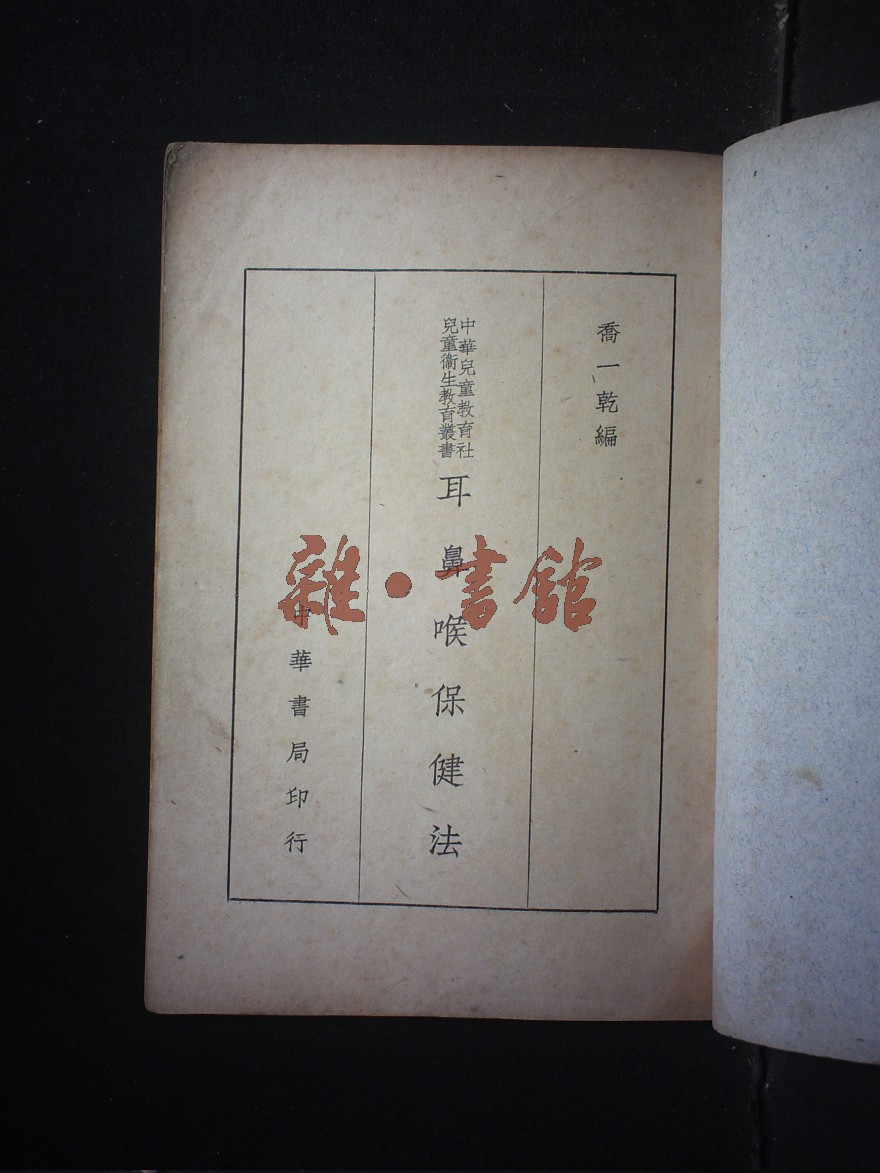 喬一乾編
中華兒童教育社
兒童衞生教育叢書
耳鼻喉保健法
中華書局印行
雜·書館